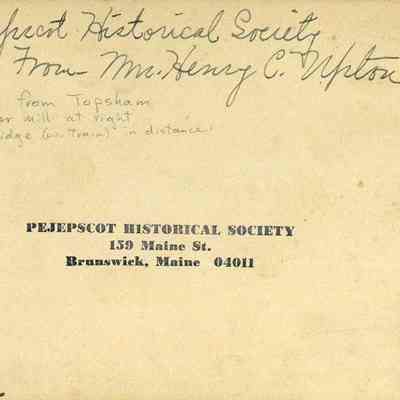 pscot Historical Society
From Mr. Henry C. Upton
from Topsham
er mill at right
idge (w. train) in distance
PEJEPSCOT HISTORICAL SOCIETY
159 Maine St.
Brunswick, Maine 04011